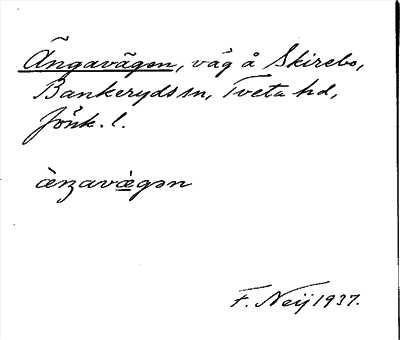 Ängavägen, väg å Skirebo,
Bankeryds sn, Tveta hd,
Jönk. l.
ængavægən
F. Neij 1937.